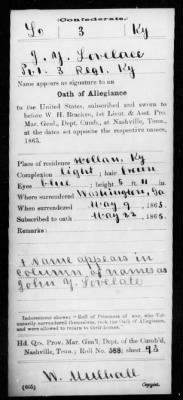 (Confederate.)
Lo 3 Ky
J. Y. Lovelace
Pvt. 3 Regt. Ky
Name appears as signature to an
Oath of Allegiance
to the United States, subscribed and sworn to
before W. H. Bracken, 1st Lieut & Asst. Pro.
Mar. Genl., Dept. Cumb., at Nashville, Tenn.,
at the dates set opposite the respective names,
1865.
Place of residence Ky
Complexion light; hair brown
Eyes blue; height 5 ft. 11 in.
Where surrendered Washington, Ga
When surrendered May 9, 1865.
Subscribed to oath May 22, 1865.
Remarks:
1 Name appears in
column of names as
John Y. Lovelace
Indorsement shows: "Roll of Prisoners of war, who Vol-
untarily surrendered themselves, took the Oath of Allegiance,
and were allowed to return to their homes."
Hd. Qrs. Prov. Mar. Gen'l, Dept. of the Cumb'd,
Nashville, Tenn.; Roll No. 588; sheet 93
W. Mulhall
(665) Copyist.